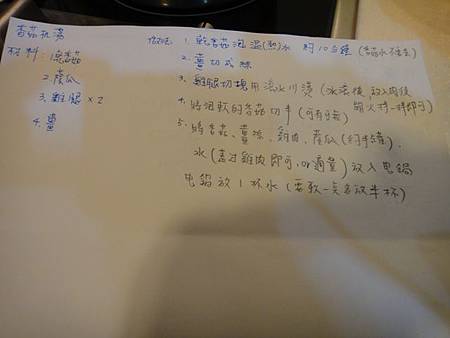 香菇雞湯
材料：1.乾香菇
2.蔭瓜
3.雞腿 x 2
4.薑
做法：1.乾香菇泡溫(熱)水 約10分鐘 (香菇水不要丟)
2.薑切成絲
3.雞腿切塊用滾水川燙 (水滾後,放入肉後
關火 一時即可)
4.將泡軟的香菇切半 (可有可無)
5.將香菇、薑絲、雞肉、蔭瓜(約半罐)、
水 (蓋过雞肉即可,or適量) 放入电鍋
电鍋放1杯水 (要軟一点多放半杯)